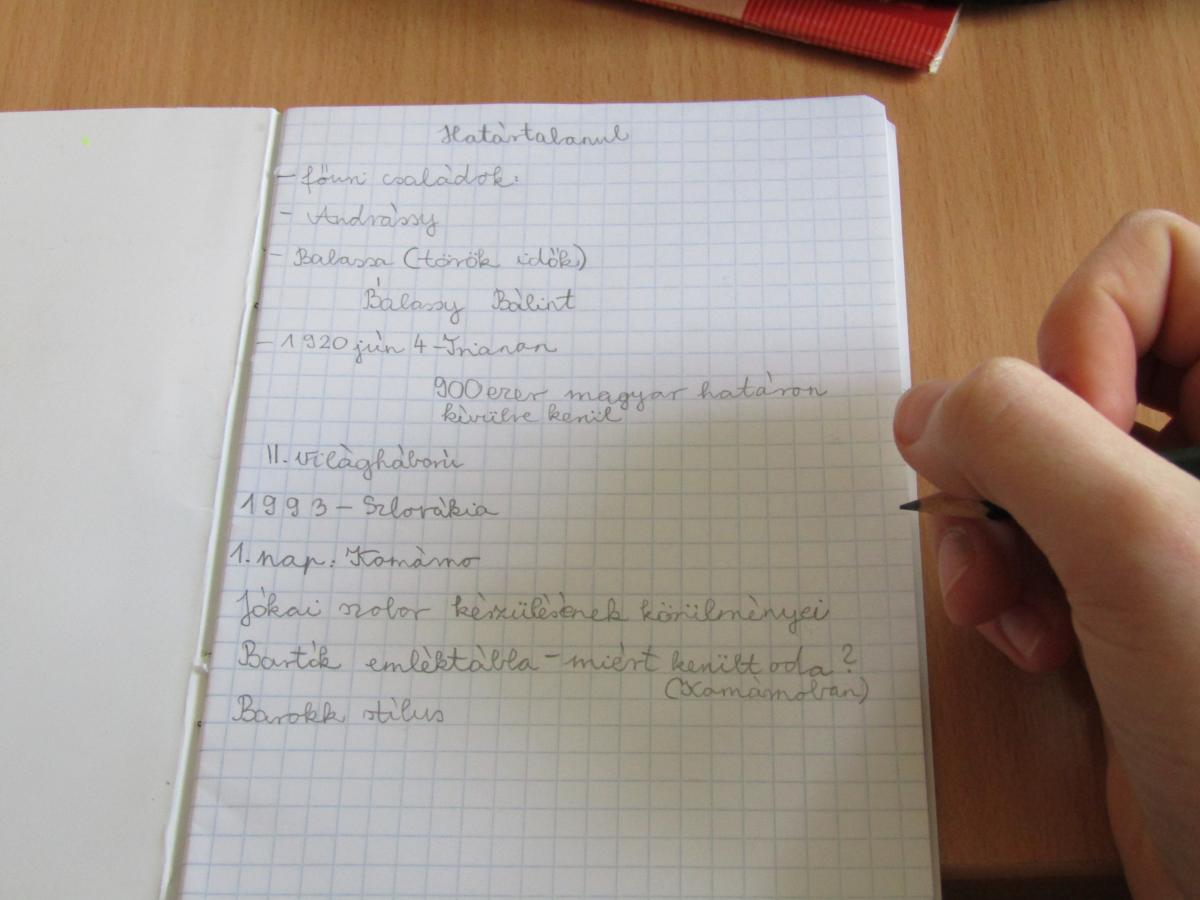 Határtalanul
- főúri családok:
- Andrássy
- Balassa (török idők)
Balassy Bálint
- 1920 jún 4 - Trianon
900 ezer magyar határon
kívülre kerül
II. világháború
1993 - Szlovákia
1. nap: Komárno
Jókai szobor készülésének körülményei
Bartók emléktábla - miért került oda?
(Komárnoban)
Barokk stílus